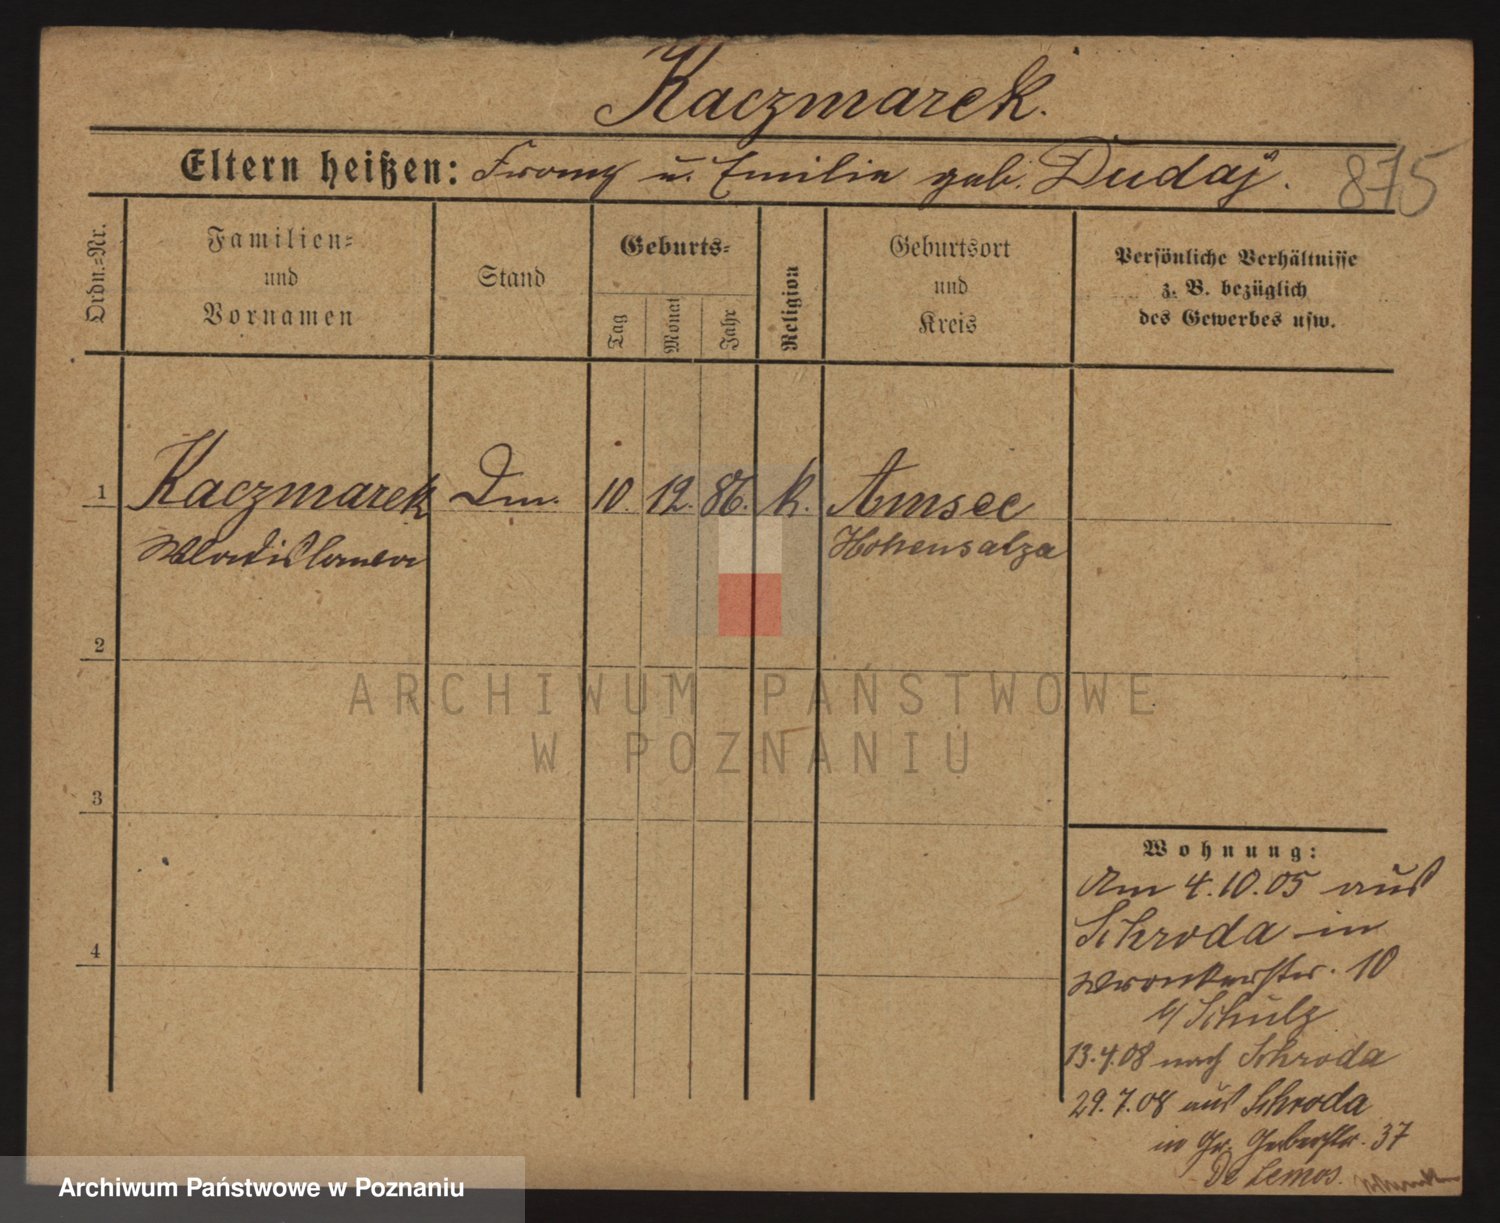 Kaczmarek.
Eltern heißen: Franz u. Emilie geb. Dudaj.
875
Ordn.=Nr.
Familien=
und
Vornamen
Stand
Geburts=
Tag
Monat
Jahr
Religion
Geburtsort
und
Kreis
Persönliche Verhältnisse
z. B. bezüglich
des Gewerbes usw.
1 Kaczmarek Dm. 10. 12. 86. k. Amsee
Wladislawa Hohensalza
2
3
4
Wohnung:
Am 4.10.05 aus
Schroda in
Wronkerstr. 10
b/ Schulz
13.4.08 nach Schroda
29.7.08 aus Schroda
in Gr. Gerberstr. 37
De Lemos.
ARCHIWUM PAŃSTWOWE
W POZNANIU
Archiwum Państwowe w Poznaniu